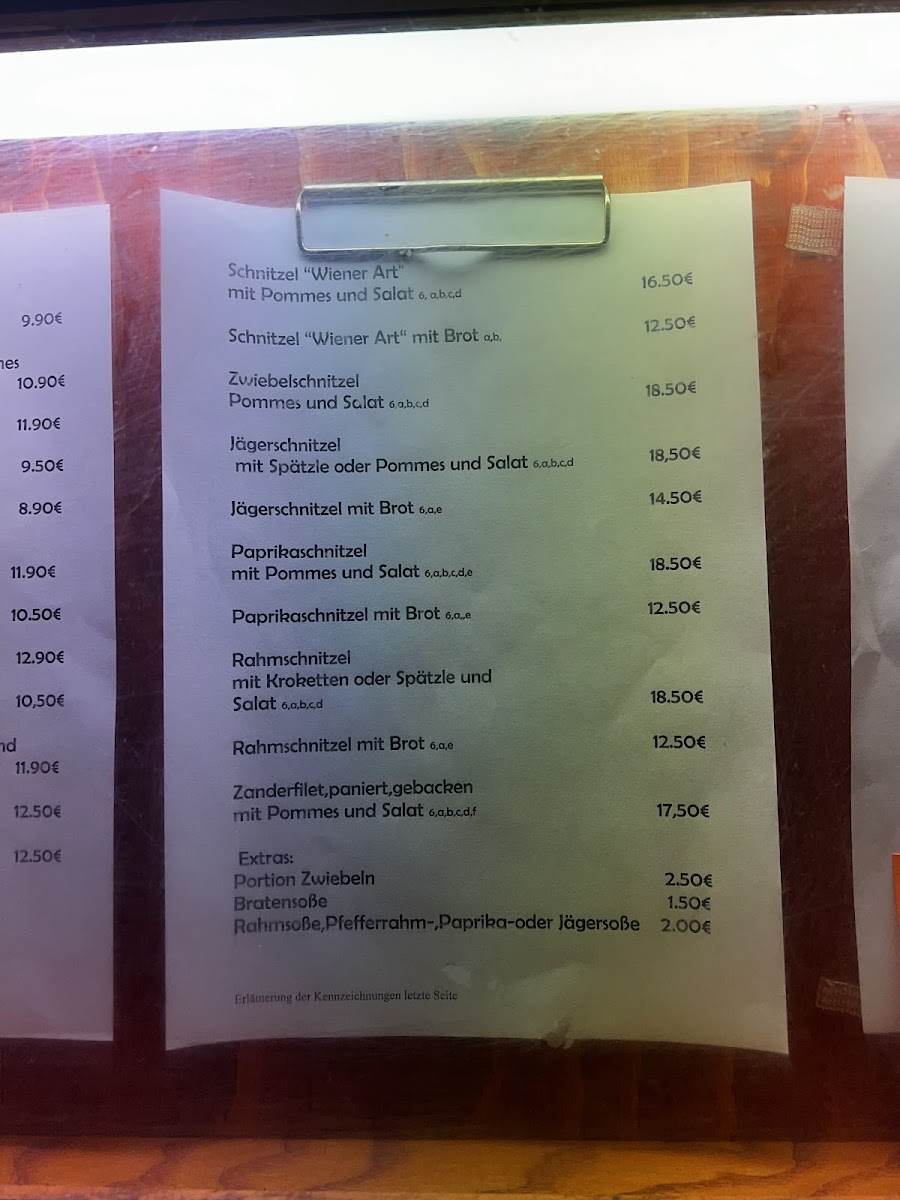 9.90€
nes
10.90€
11.90€
9.50€
8.90€
11.90€
10.50€
12.90€
10,50€
nd
11.90€
12.50€
12.50€
Schnitzel “Wiener Art”
mit Pommes und Salat 6, a,b,c,d 16.50€
Schnitzel “Wiener Art“ mit Brot a,b, 12.50€
Zwiebelschnitzel
Pommes und Salat 6,a,b,c,d 18.50€
Jägerschnitzel
mit Spätzle oder Pommes und Salat 6,a,b,c,d 18,50€
Jägerschnitzel mit Brot 6,a,e 14.50€
Paprikaschnitzel
mit Pommes und Salat 6,a,b,c,d,e 18.50€
Paprikaschnitzel mit Brot 6,a,,e 12.50€
Rahmschnitzel
mit Kroketten oder Spätzle und
Salat 6,a,b,c,d 18.50€
Rahmschnitzel mit Brot 6,a,e 12.50€
Zanderfilet,paniert,gebacken
mit Pommes und Salat 6,a,b,c,d,f 17,50€
Extras:
Portion Zwiebeln 2.50€
Bratensoße 1.50€
Rahmsoße,Pfefferrahm-,Paprika-oder Jägersoße 2.00€
Erläuterung der Kennzeichnungen letzte Seite